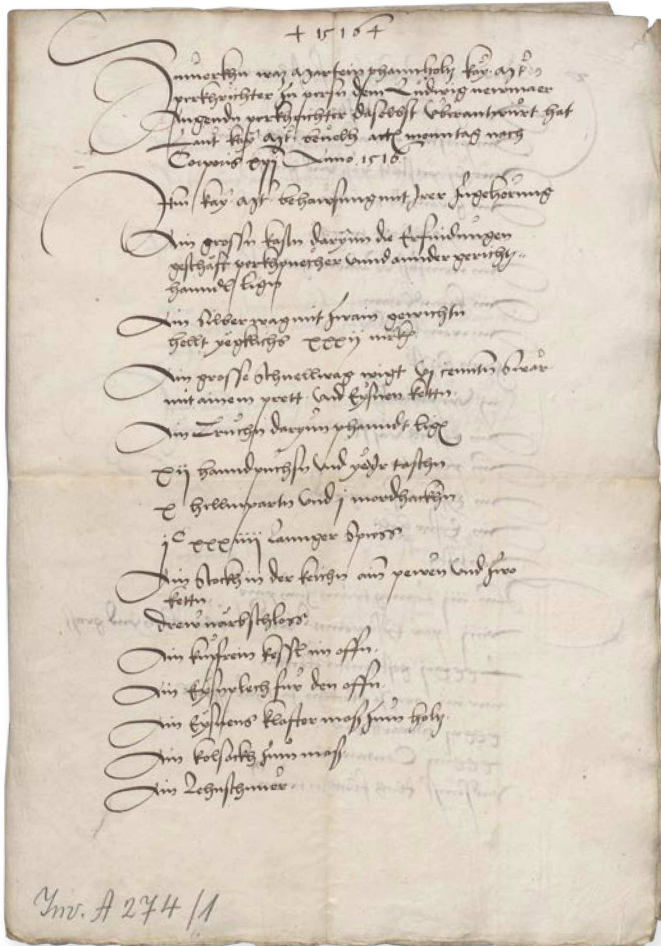 + 1516 +
Zuvermerkhn was Martein phannholtz kay. Mt.
perkhrichter zu persn dem Ludwig neirmaer
angendn perkhrichter daselbst uberantwurt hat
Laut kay. Mt. bevelh actum monntag nach
Corporis xpi Anno 1516
Item kay. Mt. behawsung mit Irer Zugehorung
Ain grossn kastn darynn die Erfindungen
geschäft perkhpuecher unnd annder gerichtz
hanndl ligen
Ain silberwag mit zwain gewichtn
hellt yegklichs xxxii mrkh
Ain grosse Schnellwag wigt vi cenntn Swär
mit ainem prett und Eysnen kettn
Ain Truchn darynn phanndt ligen
xii hanndpuchsn und yeder taschn
x hellmpartn und i mordhackhn
jC xxxiiii Lannger Spiess
Ain Stockh in der keichn ain pewrn und zwo
kettn
drew närbschloss
Ain kupfrein kessl im offn
Ain Eysnplech fur den offn
Ain Eysnens klafter mass zum holtz
Ain kolsackh zum mass
Ain Lehnschnuer
Inv. A 274/1